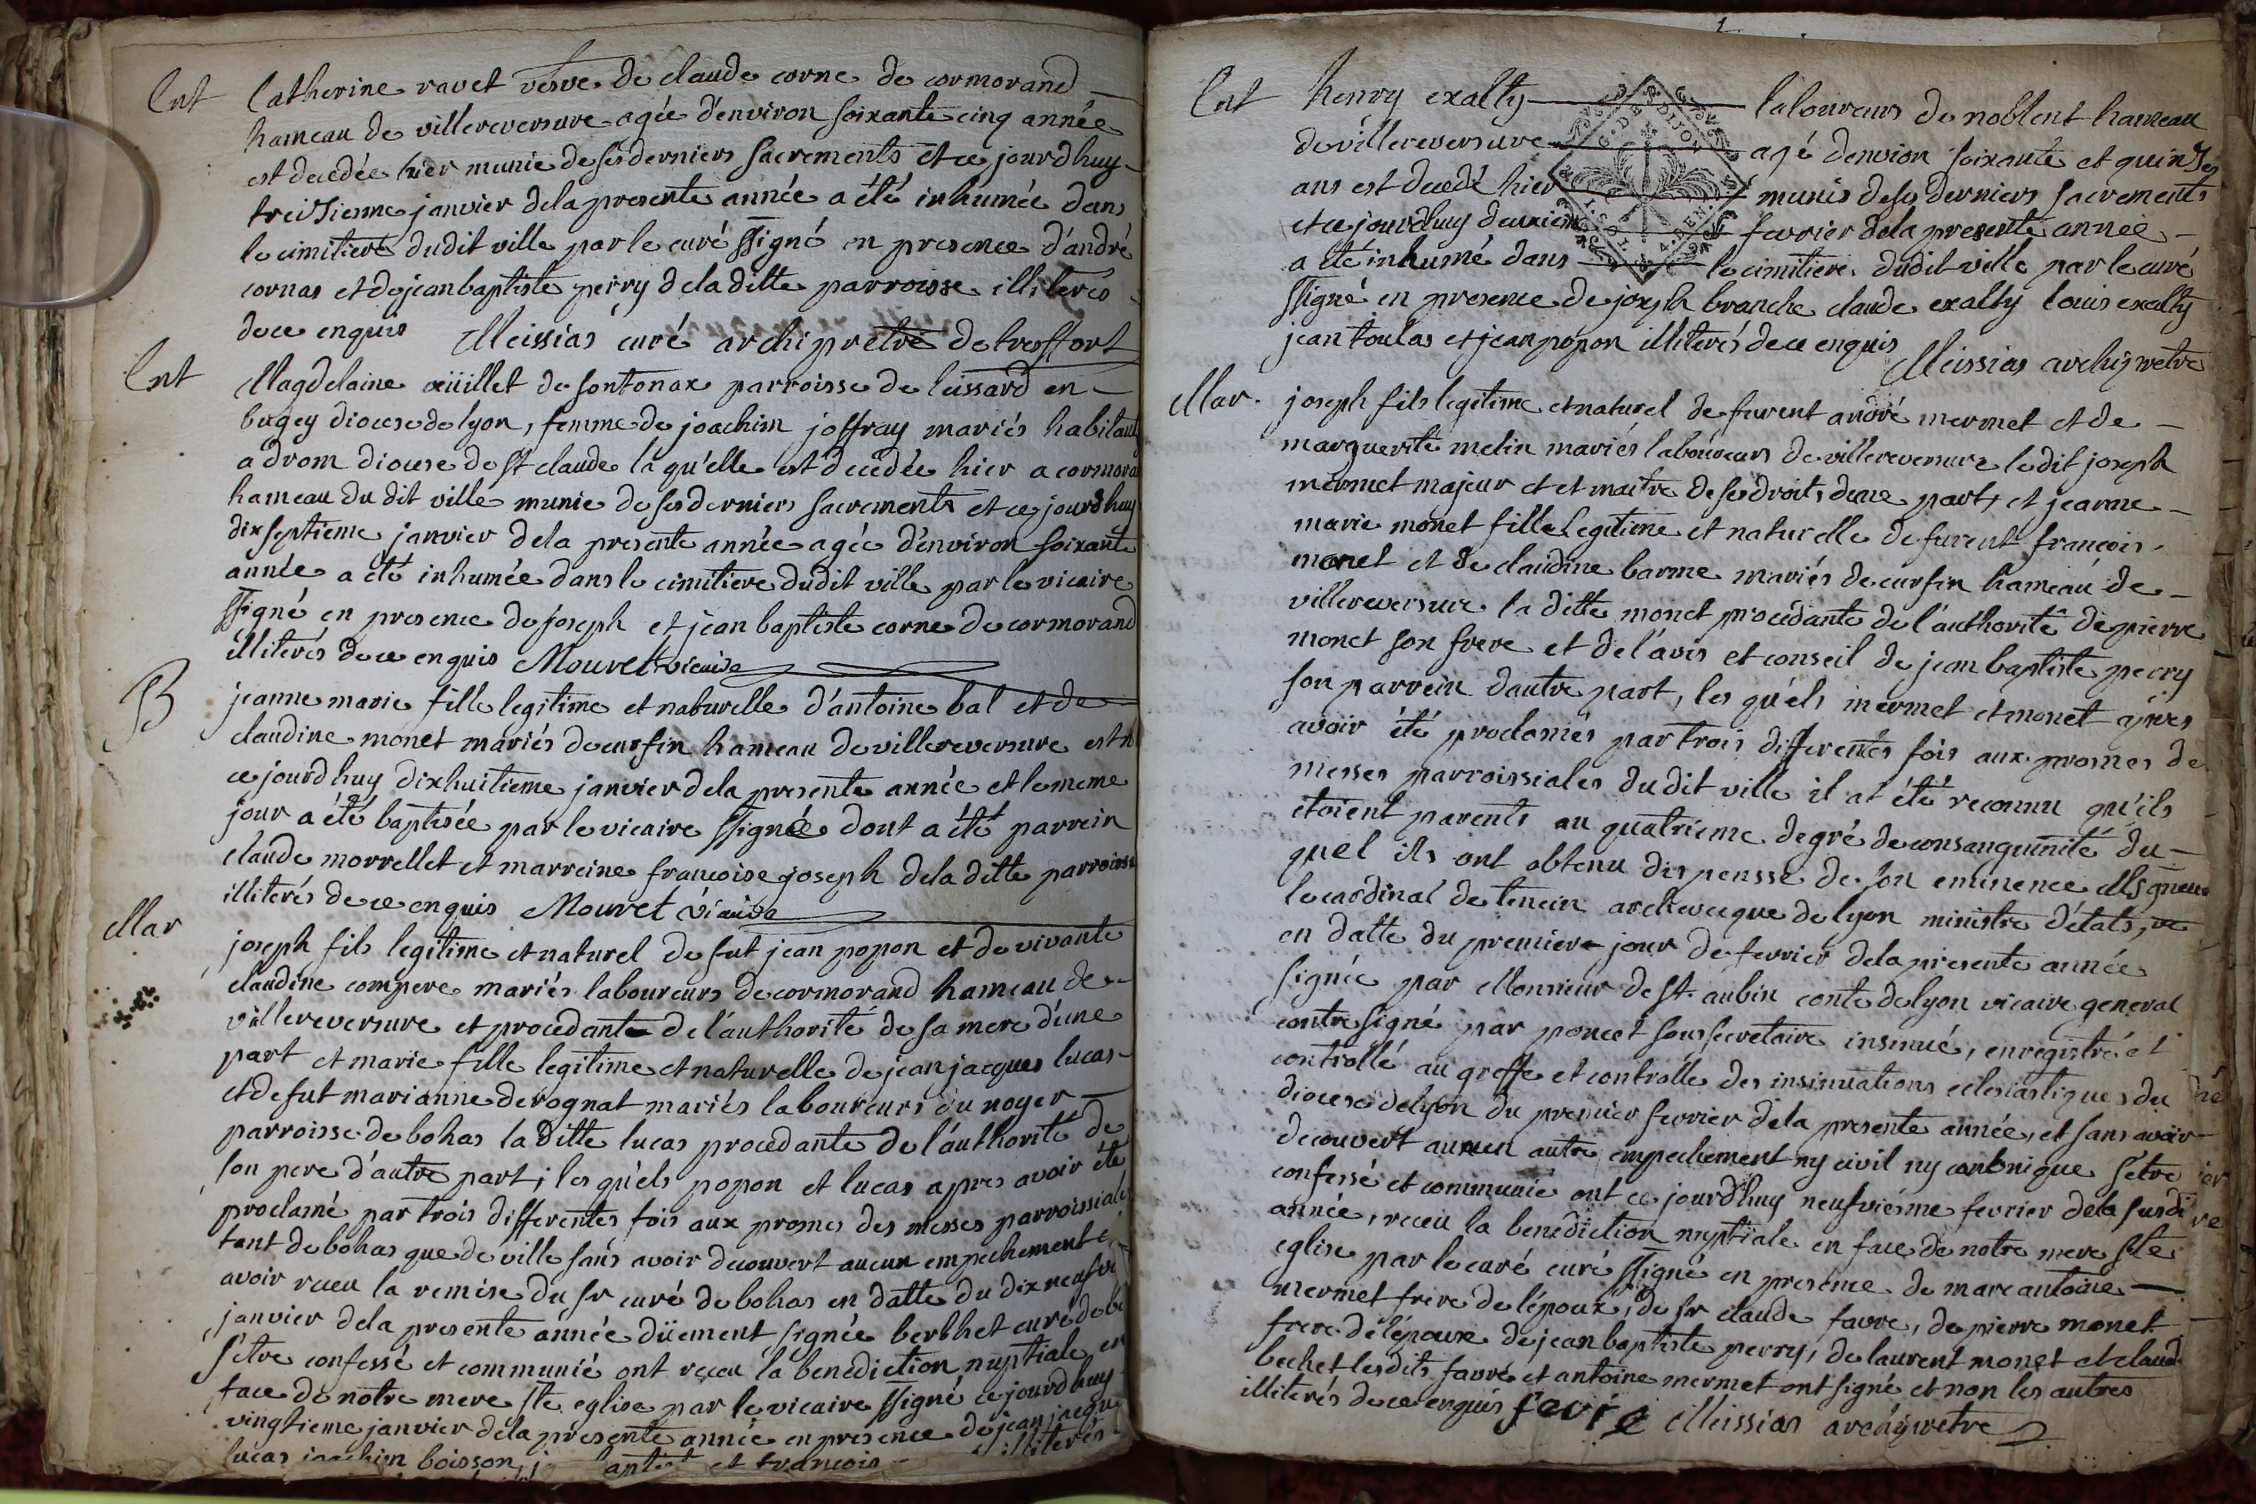 Ent Catherine ravet vesve de claude corne de cormorand
hameau de villereversure agée d'environ soixante cinq année
est decedée hier munie de ses derniers sacrements et ce jourdhuy
treizieme janvier dela presente année a été inhumée dans
le cimitiere dudit ville par le curé ssigné en presence d'andré
cornas et de jean baptiste perry dela ditte parroisse illiterés
de ce enquis Meissias curé archipretre de treffort
Ent Magdelaine de sontonax parroisse de leissard en
bugey diocese de lyon, femme de joachim joffray mariés habitant
a drom diocese de st claude la qu'elle est decedée hier a cormoran
hameau du dit ville munie de ses derniers sacrements et ce jourdhuy
dixseptieme janvier dela presente année agée d'environ soixante
année a été inhumée dans le cimitiere dudit ville par le vicaire
ssigné en presence de joseph et jean baptiste corne de cormorand
illiterés de ce enquis Mouret vicaire
B jeanne marie fille legitime et naturelle d'antoine bal et de
claudine monet mariés de cursin hameau de villereversure est
ce jourdhuy dixhuitieme janvier dela presente année et le meme
jour a été baptisée par le vicaire ssigné dont a été parrein
claude morrellet et marreine francoise joseph dela ditte parroisse
illiterés de ce enquis Mouret vicaire
Mar joseph fils legitime et naturel de fut jean popon et de vivante
claudine compere mariés laboureurs de cormorand hameau de
villereversure et procedant de l'authorité de sa mere d'une
part et marie fille legitime et naturelle de jean jacques lucas
et de fut marianne derognat mariés laboureurs du noyer
parroisse de bohas la ditte lucas procedante de l'authorité de
son pere d'autre part, les qu'els popon et lucas apres avoir été
proclamé par trois differentes fois aux prosnes des messes parroissiale
tant de bohas que de ville sans avoir decouvert aucun empechement et
avoir receu la remise du sr curé de bohas en datte du dix neufvi
janvier dela presente année düement signée berthet curé de bo
s'etre confessé et communié ont receu la benediction nuptiale en
face de notre mere ste eglise par le vicaire ssigné ce jourdhuy
vingtieme janvier dela presente année en presence de jean jacque
lucas joachim boisson, et francois illiterés
1
Ent henry exalty laboureurs de noblent hameau
de villereversure agé d'envion soixante et quinzes
ans est decedé hier munis de ses derniers sacrements
et ce jourdhuy deuxieme fevrier dela presente année
a été inhumé dans le cimitiere dudit ville par le curé
ssigné en presence de joseph branche claude exalty louis exalty
jean toulas et jean popon illiterés de ce enquis
Meissias archipretre
G. DE DIJON
1. SOL. 4. DEN.
Mar. joseph fils legitime et naturel de furent andré mermet et de
marguerite melin mariés laboureurs de villereversure le dit joseph
mermet majeur et et maitre de ses droits dune part, et jeanne
marie monet fille legitime et naturelle de furent francois
monet et de claudine barme mariés de cursin hameau de
villereversure la ditte monet procedante de l'authorité de pierre
monet son frere et de l'avis et conseil de jean baptiste perry
son parrein dautre part, les qu'els mermet et monet après
avoir été proclamés par trois differentes fois aux prosnes de
messes parroissiales du dit ville il at été reconnu qu'ils
etoient parents au quatrieme degré de consanguinité du
quel ils ont obtenu dispensse de son eminence Msgneur
le cardinal de tencin archevecque de lyon ministre d'etats,
en datte du premiere jour de fevrier dela presente année
signée par Monsieur de st. aubin conte de lyon vicaire general
contresigné par poncet soussecretaire insinué, enregistré et
controllé au greffe et controlle des insinuations eclesiastiques du
diocese de lyon du premier fevrier dela presente année, et sans avoir
decouvert aucun autre empechement ny civil ny canonique s'etre
confessé et communié ont ce jourdhuy neufviésme fevrier dela susdi
année, receu la benediction nuptiale en face de notre mere ste
eglise par le curé curé ssigné en presence de marc antoine
mermet frere de l'époux, de sr claude favre, de pierre monet
frere de l'épouse de jean baptiste perry, de laurent monet et claud
bechet les dits favre et antoine mermet ont signé et non les autres
illiterés de ce enquis favre Meissias archipretre